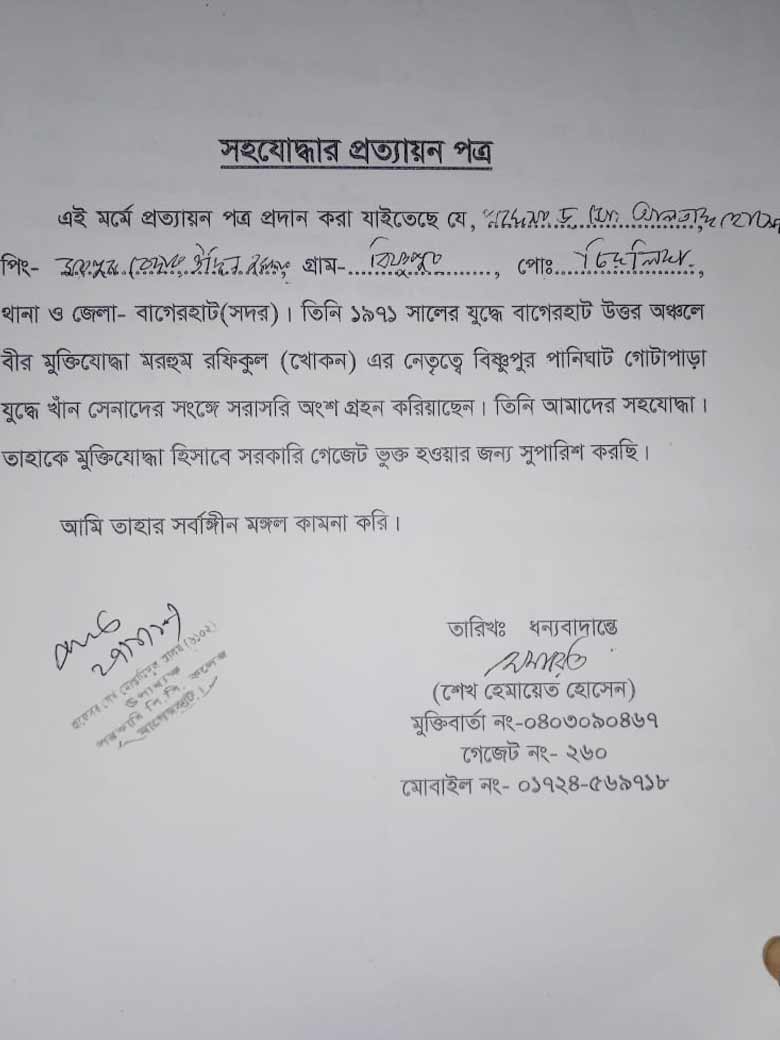 সহযোদ্ধার প্রত্যায়ন পত্র
এই মর্মে প্রত্যায়ন পত্র প্রদান করা যাইতেছে যে,
পিং- গ্রাম- বিষ্ণুপুর, পোঃ
থানা ও জেলা- বাগেরহাট(সদর)। তিনি ১৯৭১ সালের যুদ্ধে বাগেরহাট উত্তর অঞ্চলে
বীর মুক্তিযোদ্ধা মরহুম রফিকুল (খোকন) এর নেতৃত্বে বিষ্ণুপুর পানিঘাট গোটাপাড়া
যুদ্ধে খাঁন সেনাদের সংঙ্গে সরাসরি অংশ গ্রহন করিয়াছেন। তিনি আমাদের সহযোদ্ধা।
তাহাকে মুক্তিযোদ্ধা হিসাবে সরকারি গেজেট ভুক্ত হওয়ার জন্য সুপারিশ করছি।
আমি তাহার সর্বাঙ্গীন মঙ্গল কামনা করি।
তারিখঃ ধন্যবাদান্তে
(শেখ হেমায়েত হোসেন)
মুক্তিবার্তা নং-০৪০৩০৯০৪৬৭
গেজেট নং- ২৬০
মোবাইল নং- ০১৭২৪-৫৬৯৭১৮